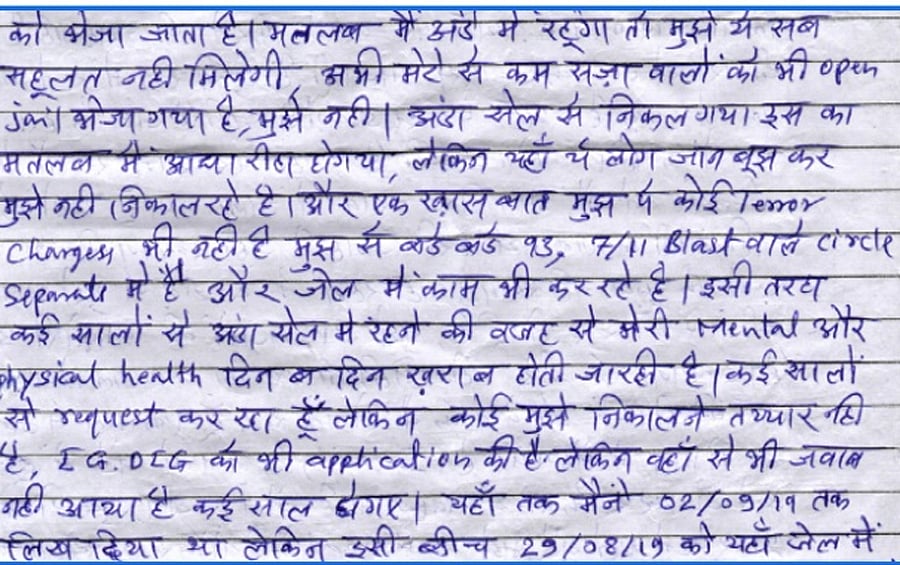 को भेजा जाता है। मतलब मैं अंडे में रहूंगा तो मुझे ये सब
सहूलत नही मिलेगी, अभी मेरे से कम सज़ा वालों को भी open
jail भेजा गया है, मुझे नही। अंडा सेल से निकल गया इस का
मतलब मैं आधा रीहा होगया, लेकिन यहाँ ये लोग जान बूझ कर
मुझे नही निकाल रहे है। और एक ख़ास बात मुझ पे कोई Terror
Charges भी नही है मुझ से बडे बडे 93, 7/11 Blast वाले circle
Separate में है और जेल में काम भी कर रहे है। इसी तरह
कई सालों से अंडा सेल मे रहने की वजह से मेरी Mental और
physical health दिन ब दिन ख़राब होती जारही है। कई सालों
से request कर रहा हूँ लेकिन कोई मुझे निकालने तय्यार नही
है, IG. DIG को भी application की है लेकिन वहाँ से भी जवाब
नही आया है कई साल होगए। यहाँ तक मैंने 02/09/19 तक
लिख दिया था लेकिन इसी बीच 29/08/19 को यहाँ जेल में